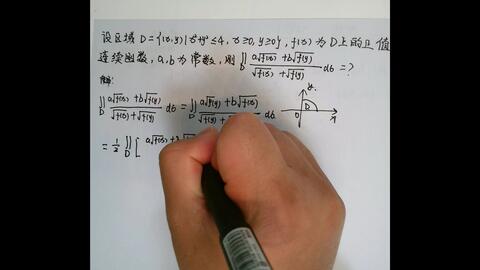 设区域 D={(x,y)|x²+y²≤4, x≥0, y≥0}, f(x)为D上的正值
连续函数, a,b为常数, 则∬_D (a√f(x)+b√f(y))/(√f(x)+√f(y)) dσ=?
解:
∬_D (a√f(x)+b√f(y))/(√f(x)+√f(y)) dσ = ∬_D (a√f(y)+b√f(x))/(√f(y)+ dσ
y
D
O
x
= 1/2 ∬_D [ a√f(x)+